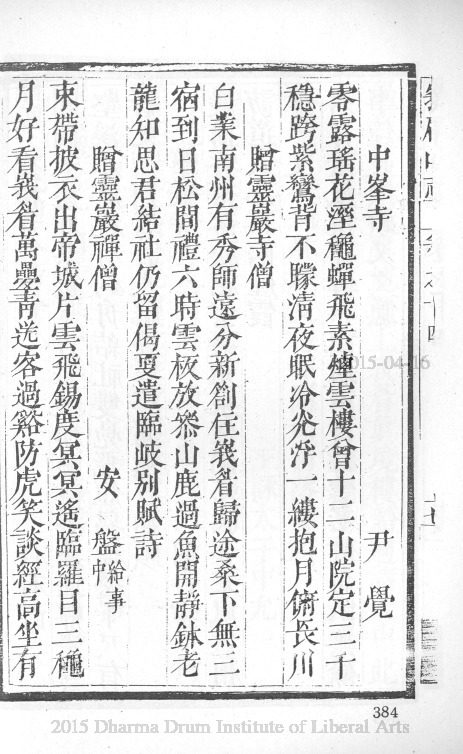 中峯寺 尹覺
零露瑤花溼龝蟬飛素煙雲樓曾十二山院定三千
穩跨紫鸞背不矇淸夜眠冷光浮一縷抱月俯長川
贈靈巖寺僧
白業南州有秀師遠分新劄住峩睂歸途桑下無三
宿到日松間禮六時雲板放叅山鹿過魚開靜鉢老
龍知思君結社仍留偈夏遣臨岐別賦詩
贈靈巖禪僧 安盤給事中
束帶披衣出帝城片雲飛錫度冥冥遙臨羅目三龝
月好看峩睂萬疊靑送客過谿防虎笑談經高坐有
384
2015-04-16
2015 Dharma Drum Institute of Liberal Arts